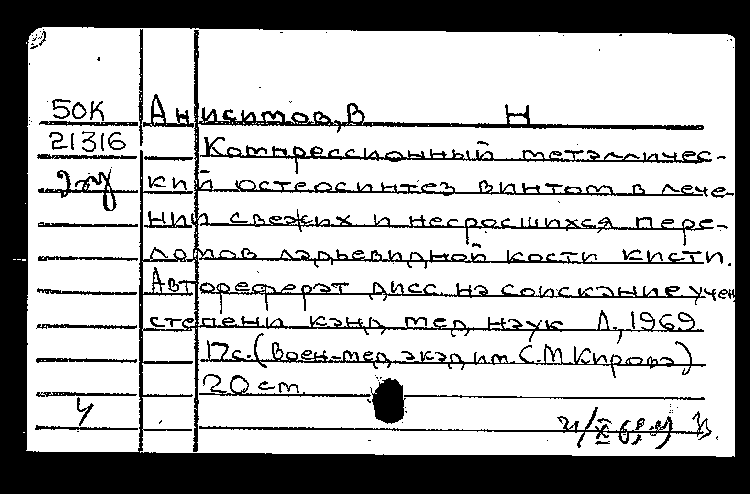 50К Анисимов, В Н
21316 Компрессионный металличес-
кий остеосинтез винтом в лече-
нии свежих и несросшихся пере-
ломов ладьевидной кости кисти.
Автореферат дисс на соискание учен
степени канд мед наук Л., 1969
17с. (Воен-мед акад им. С.М Кирова)
20 см.